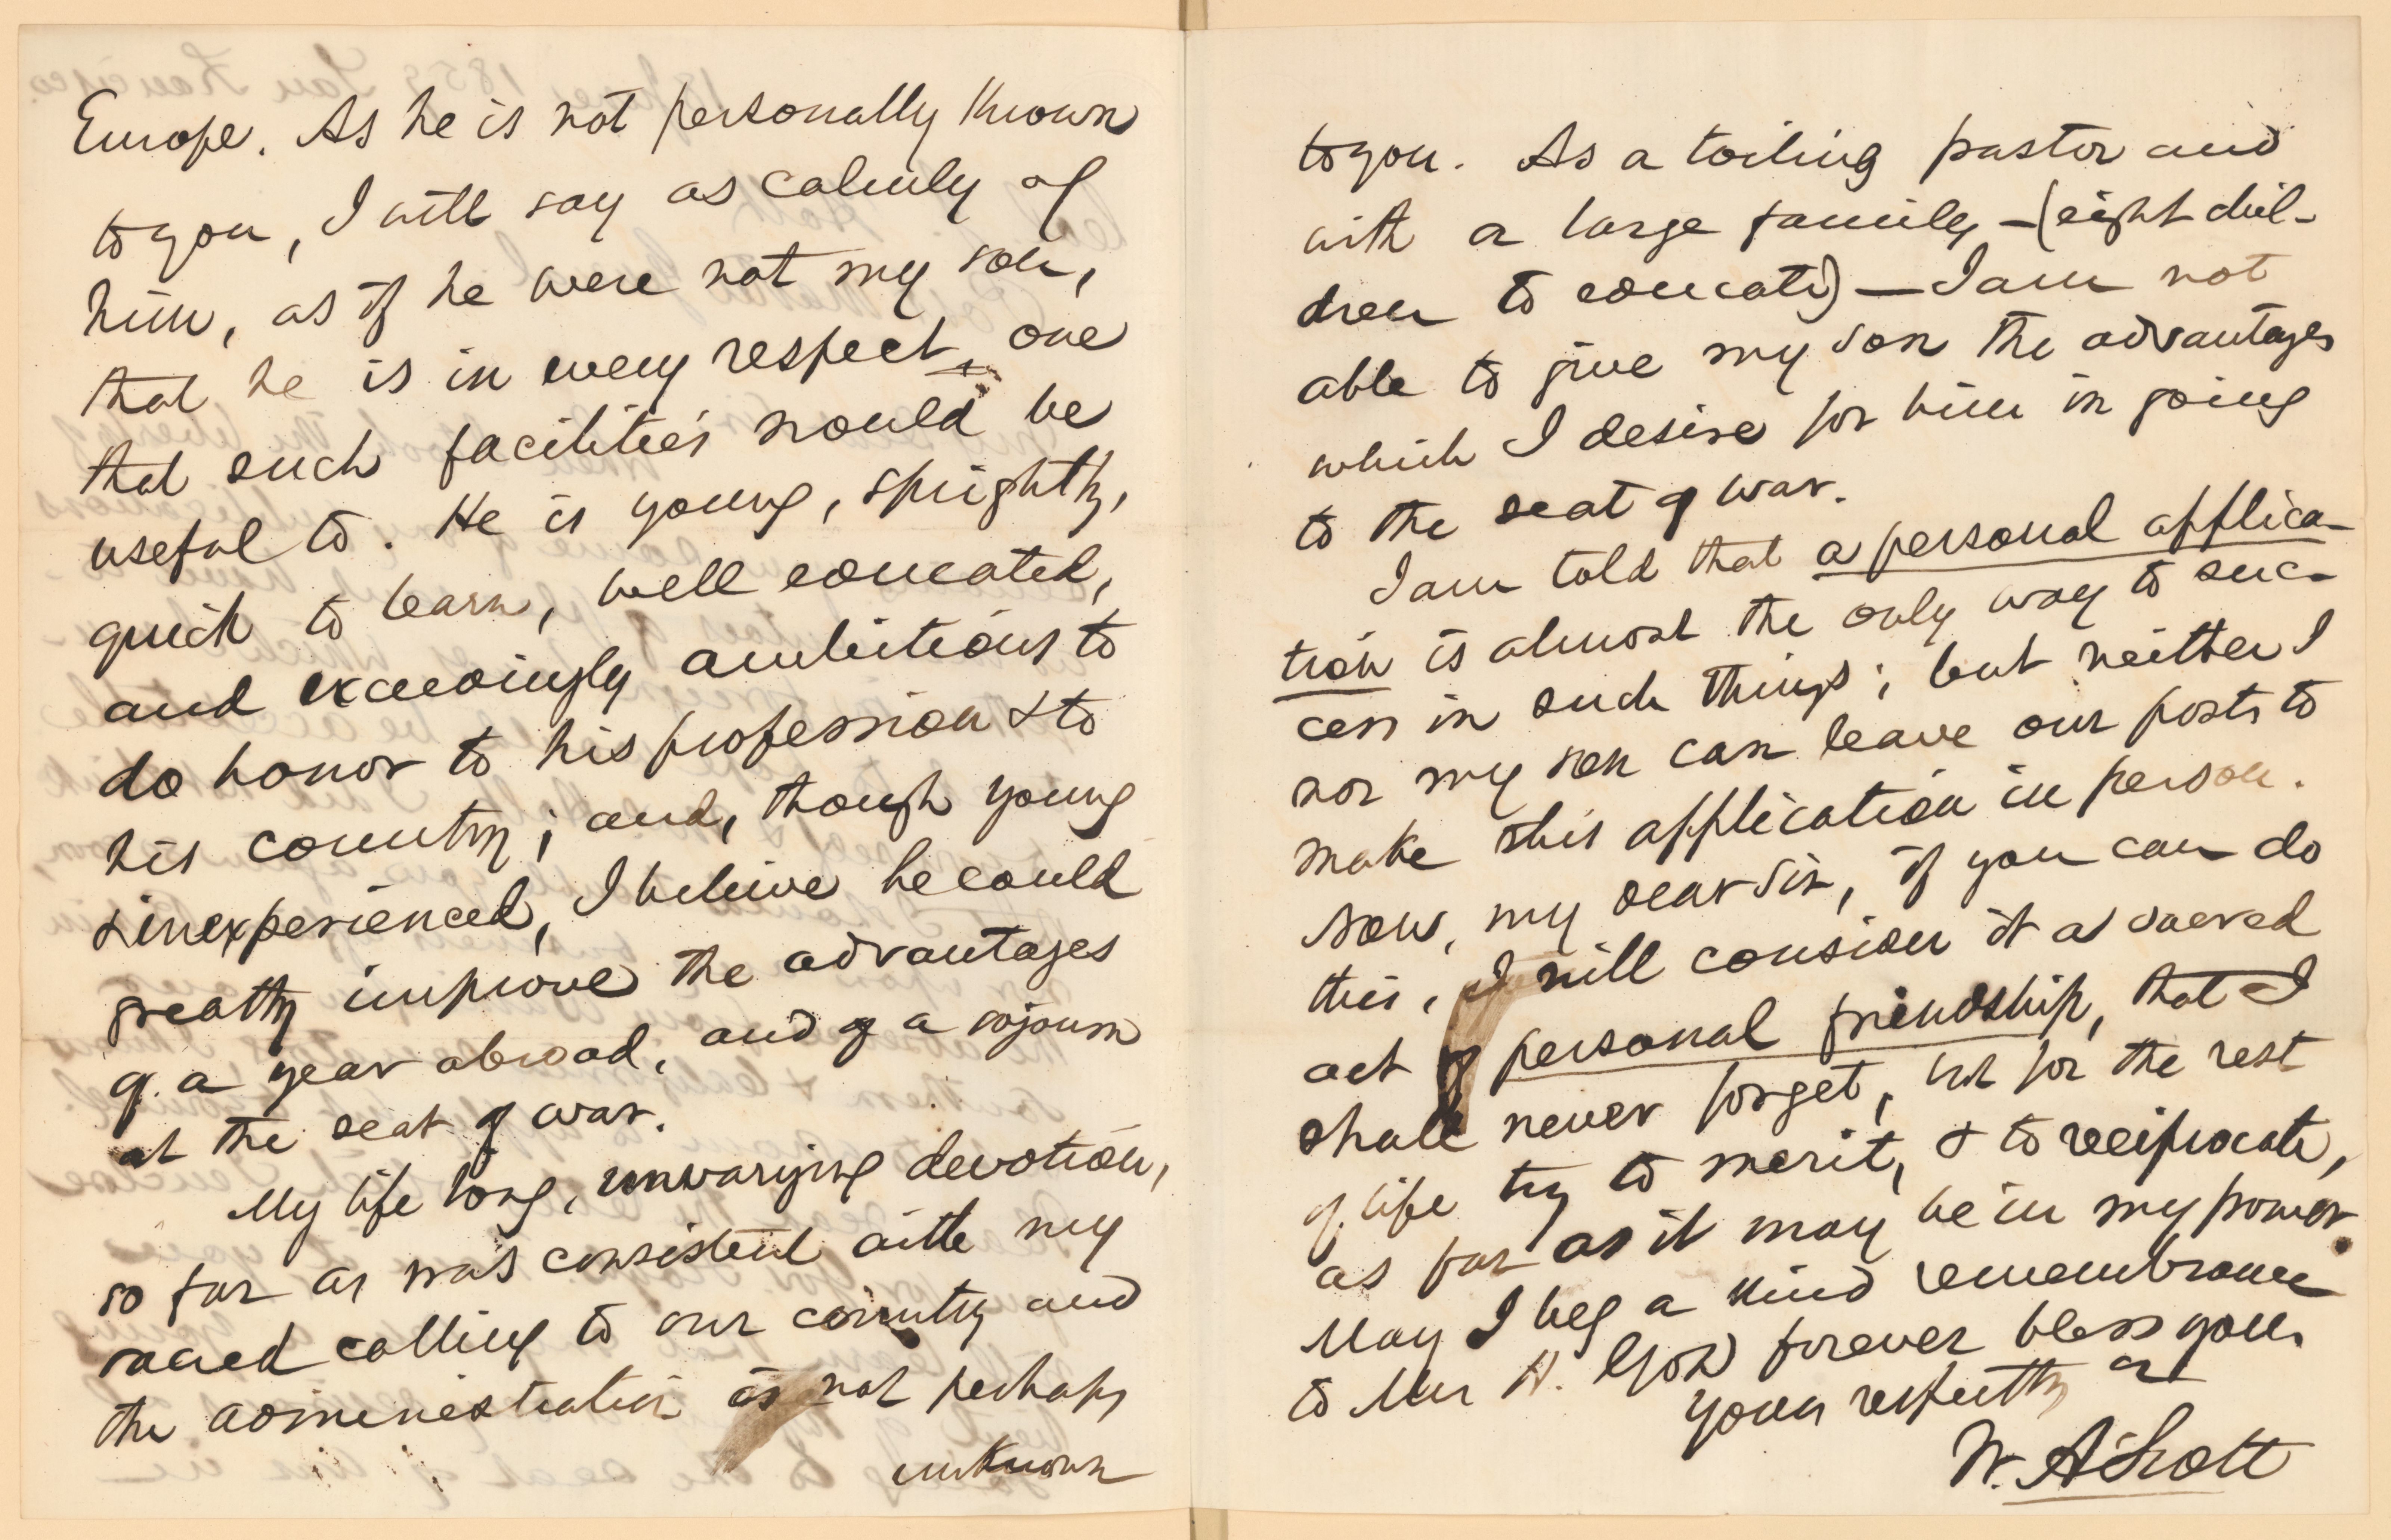 Europe. As he is not personally known
to you, I will say as calmly of
him, as if he were not my son,
that he is in every respect, one
that such facilities would be
useful to. He is young, sprightly,
quick to learn, well educated,
and exceedingly ambitious to
do honor to his profession & to
his country; and, though young
& inexperienced, I believe he could
greatly improve the advantages
of a year abroad, and of a sojourn
at the seat of war.
My life long, unvarying devotion,
so far as was consistent with my
sacred calling to our country and
the administration is not perhaps
unknown
to you. As a toiling pastor and
with a large family - (eight chil-
dren to educate) — I am not
able to give my son the advantages
which I desire for him in going
to the seat of war.
I am told that a personal applica-
tion is almost the only way to suc-
cess in such things; but neither I
nor my son can leave our posts to
make this application in person.
Now, my dear Sir, if you can do
this, I will consider it a sacred
act of personal friendship, that I
shall never forget, but for the rest
of life try to merit, & to reciprocate,
as far as it may be in my power.
May I beg a kind remembrance
to Mrs H. God forever bless you.
yours respectfly &c
W. A Scott